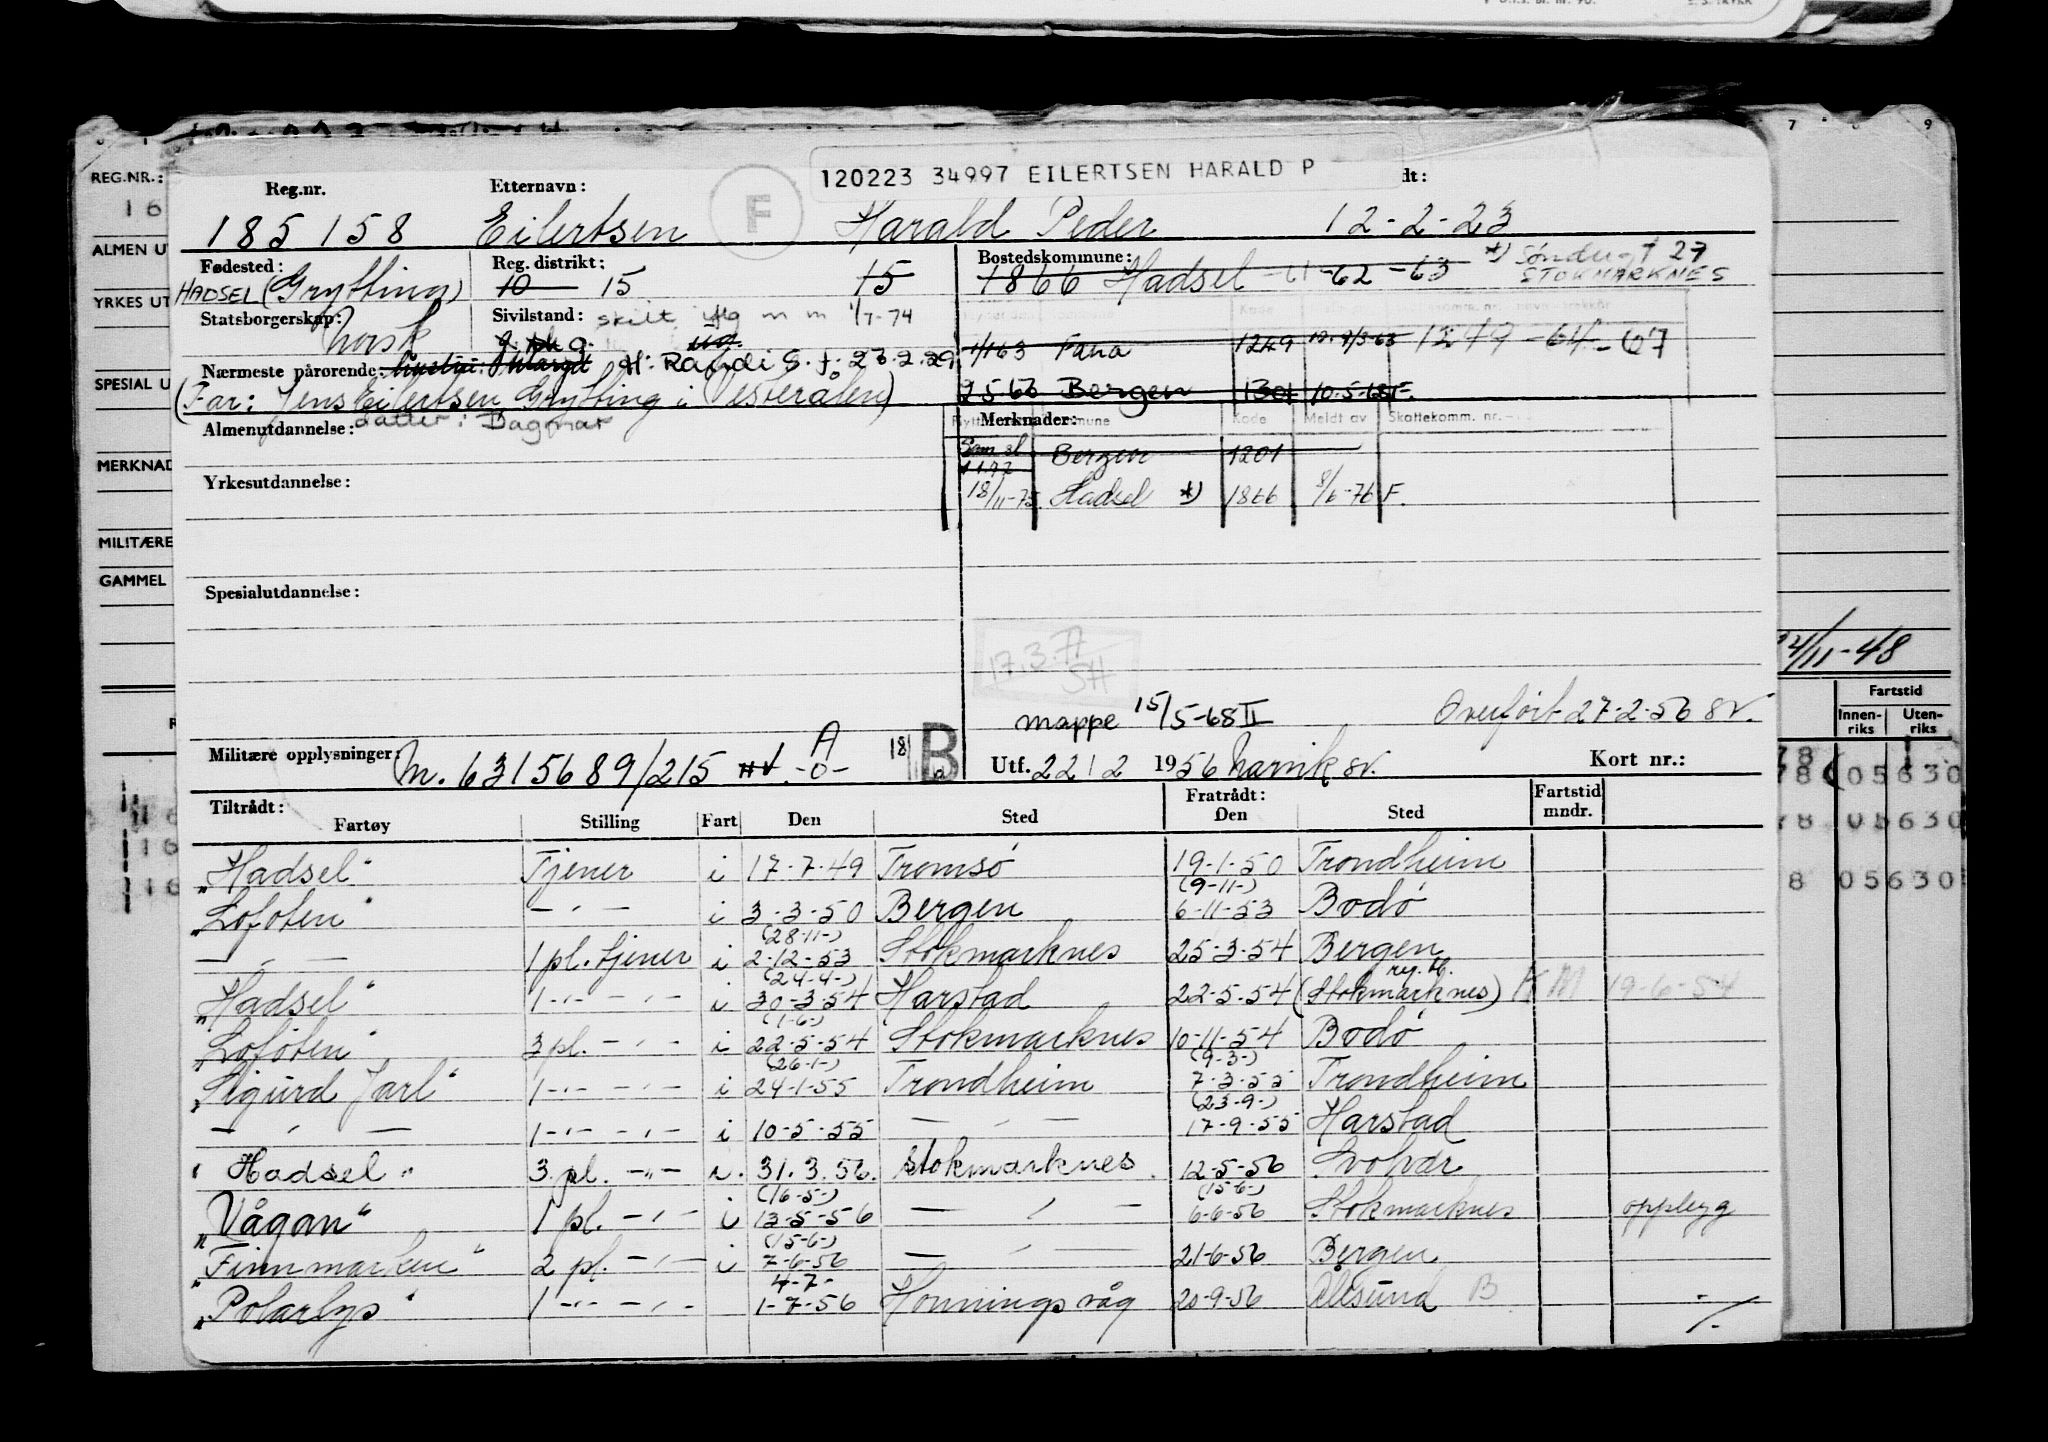 120223 34997 EILERTSEN HARALD P
Reg.nr. Etternavn: F dt:
185158 Eilertsen Harald Peder 12-2-23
Fødested: Reg. distrikt: Bostedskommune:
HADSEL (Grytting) 10 15 15 1866 Hadsel -61-62-63 *) Søndregt 27
STOKMARKNES
Statsborgerskap: Sivilstand: skilt
Norsk g.
1/1 63 Fana 1249 1247-64-67
Nærmeste pårørende: H: Randi S. f. 23.2.29
(Far: Jens Eilertsen Grytting i Vesterålen) 2 5 66 Bergen 1301 10-5-68 F.
datter: Dagmar
Almenutdannelse: Merknader:
Kode Meldt av Skattekomm. nr.
Bergen 1201
Yrkesutdannelse:
18/11-75 Hadsel *) 1866 8/6-76 F.
Spesialutdannelse:
17.3.77
SH
mappe 15/5-68 II Overført 27-2-56 SN.
Militære opplysninger: M. 6315689/215 A -0- 18 B Utf. 22/2 1956 Narvik SN. Kort nr.:
Tiltrådt: Fratrådt: Fartstid
Fartøy Stilling Fart Den Sted Den Sted mndr.
"Hadsel" Tjener i 17-7-49 Tromsö 19-1-50 Trondheim
(9-11-)
"Lofoten" — " — i 3-3-50 Bergen 6-11-53 Bodö
(28-11-)
— " — 1 pl. tjener i 2-12-53 Stokmarknes 25-3-54 Bergen
(24-4-)
"Hadsel" 1 -"- -"- i 30-3-54 Harstad 22-5-54 (Stokmarknes) 19-6-54
(1-6-)
"Lofoten" 3 pl. -"- i 22-5-54 Stokmarknes 10-11-54 Bodö
(26-1-) (9-3-)
"Sigurd Jarl" 1 -"- -"- i 24-1-55 Trondheim 7-3-55 Trondheim
(23-9-)
— " — 1 -"- -"- i 10-5-55 — " — 17-9-55 Harstad
"Hadsel" 3 pl. -"- i. 31.3.56. Stokmarknes 12-5-56 Svolvær
(16-5-) (15-6-)
"Vågan" 1 pl. -"- i 13-5-56 — " — 6-6-56 Stokmarknes opplegg
(15-6-)
"Finnmarken" 2 pl. -"- i 7-6-56 — " — 21-6-56 Bergen
4-7-
"Polarlys" 1 -"- -"- 1-7-56 Honningsvåg 20-9-56 Ålesund B ./.
REG.NR.:
16
ALMEN UT
YRKES UT
SPESIAL U
MERKNAD
MILITÆRE
GAMMEL
24/11-48
Fartstid
Innen-riks Uten-riks
78 05630
78 05630
8 05630